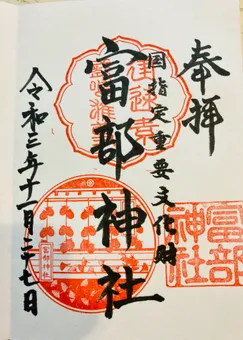 奉拝
国指定重要文化財
富部神社
令和三年十一月二十七日
富部
神社